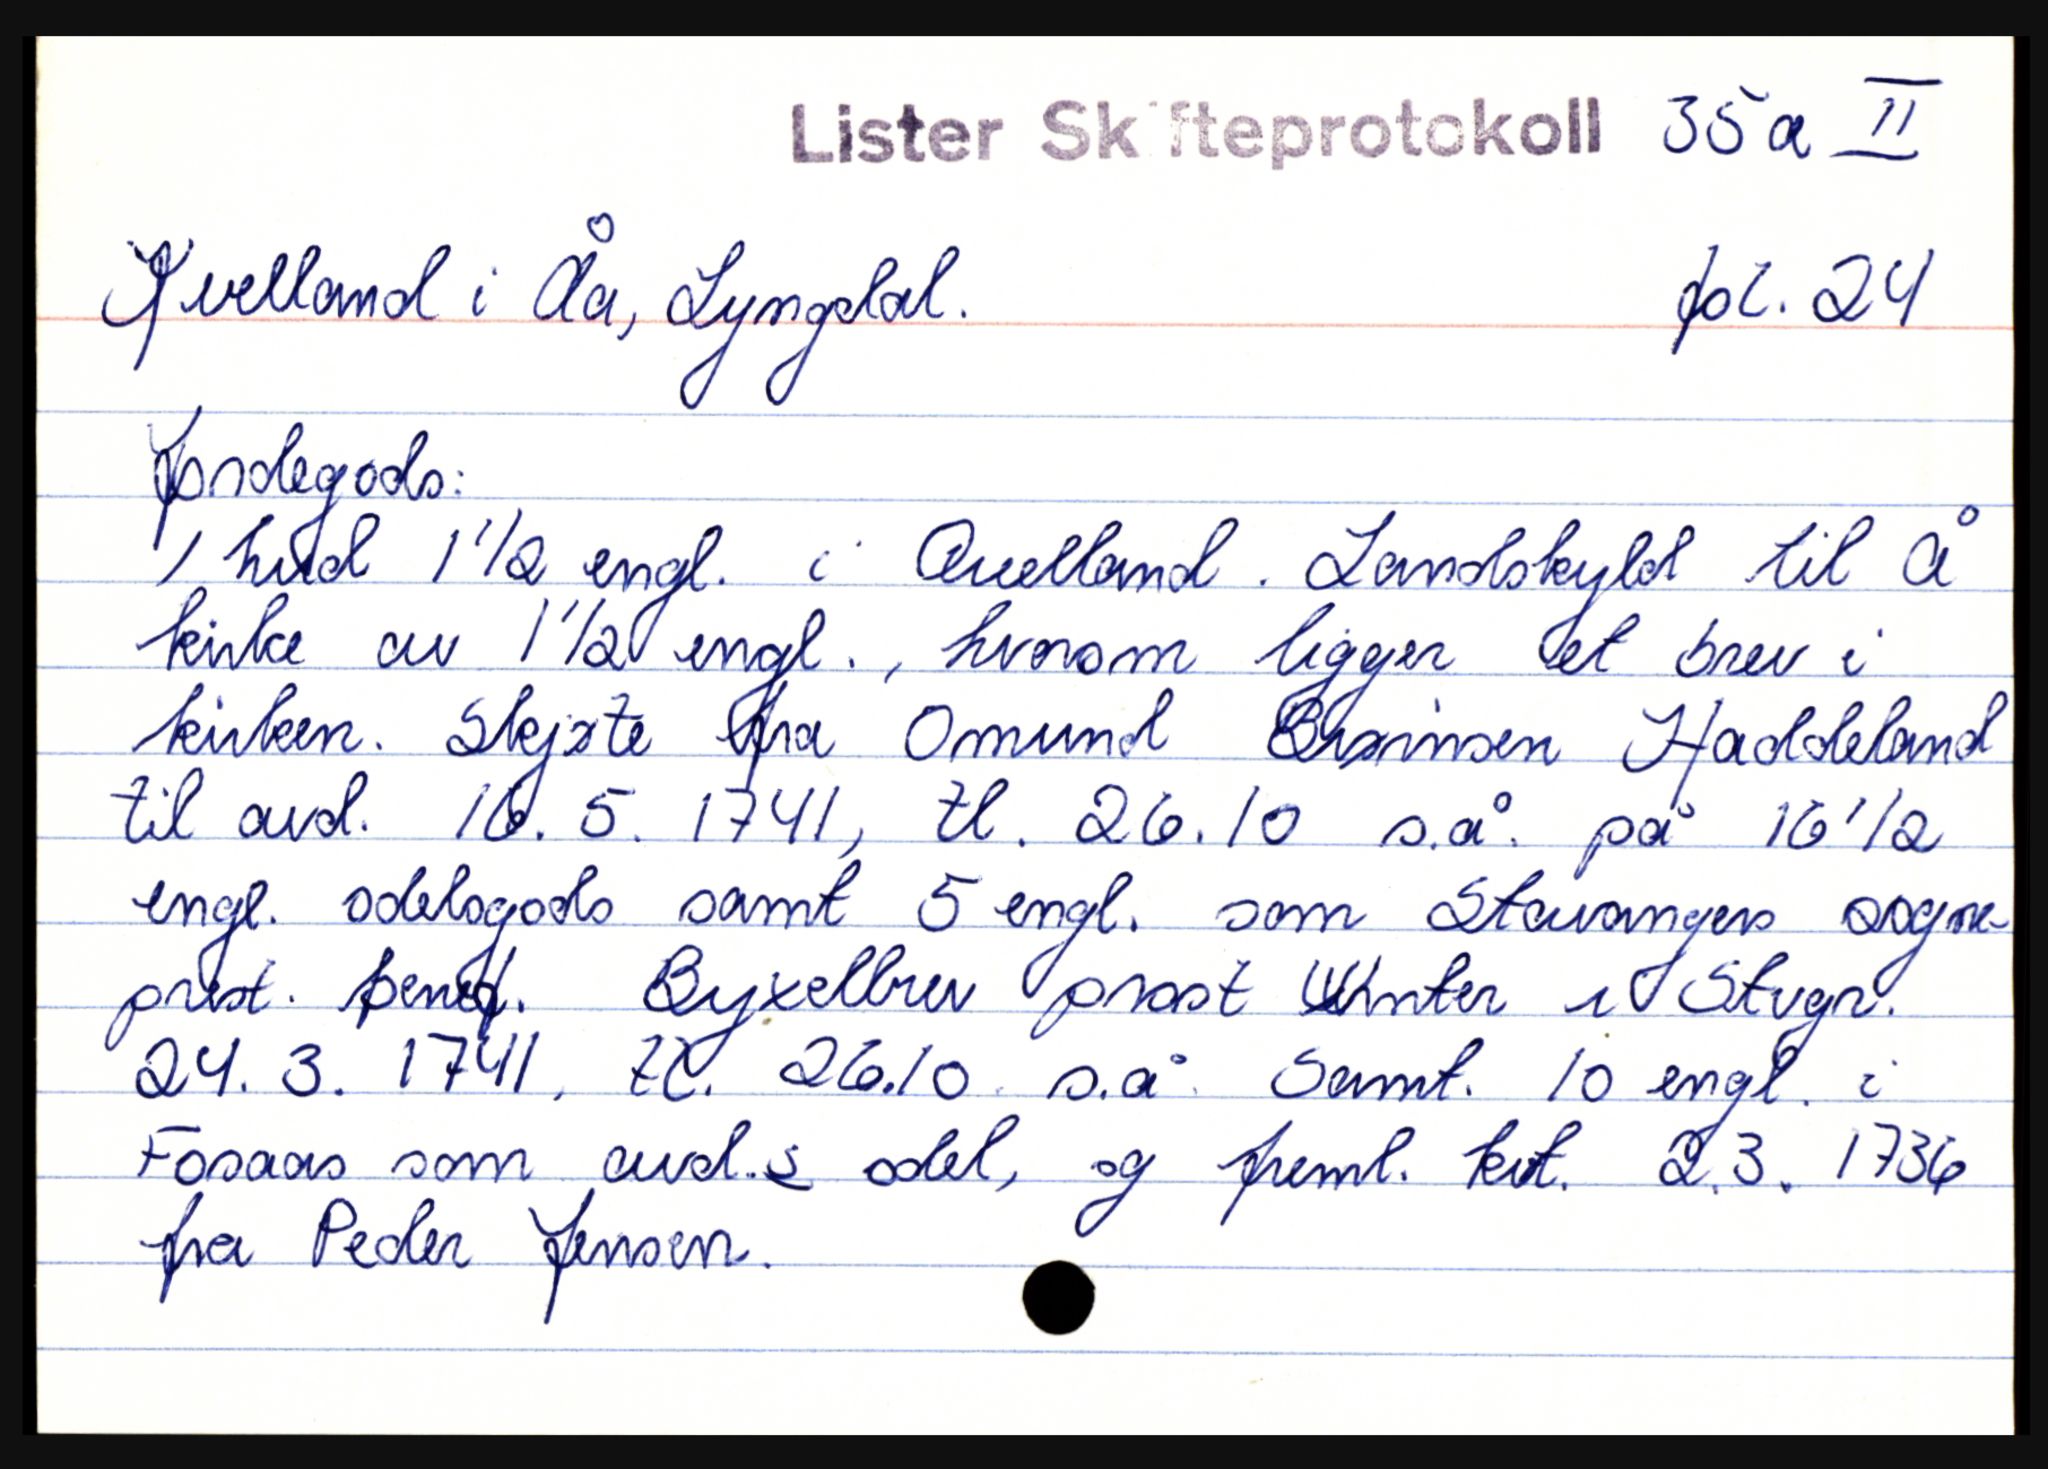 Lister Skifteprotokoll 35a II
Kvelland i Åa, Lyngdal. fol. 24
Jordegods:
1 hud 1 1/2 engl. i Qvelland. Landskyld til Å
kirke av 1 1/2 engl., hvorom ligger et brev i
kirken. Skjøte fra Omund Haddeland
til avd. 16. 5. 1741, tl. 26.10 s.å. på 16 1/2
engl. odelsgods samt 5 engl. som Stavangers sogne-
prest. benef. Byxelbrev prost Winter i Stvgr.
24. 3. 1741, tl. 26.10. s.å. Samt. 10 engl. i
Fosaas som avd.s odel, og freml. kvt. 2.3. 1736
fra Peder Jensen.